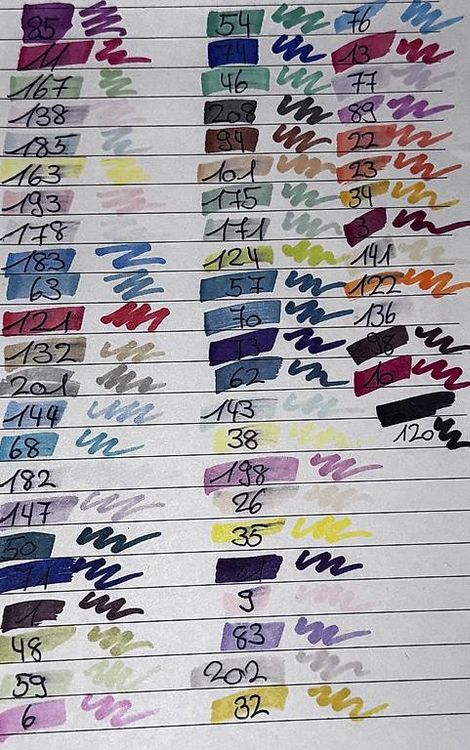 85
11
167
138
185
163
193
178
183
63
121
132
201
144
68
182
147
50
1
48
59
6
54
46
208
94
101
175
171
124
57
70
73
62
143
38
198
26
35
9
83
202
32
76
13
77
89
22
23
34
3
141
122
136
98
10
120